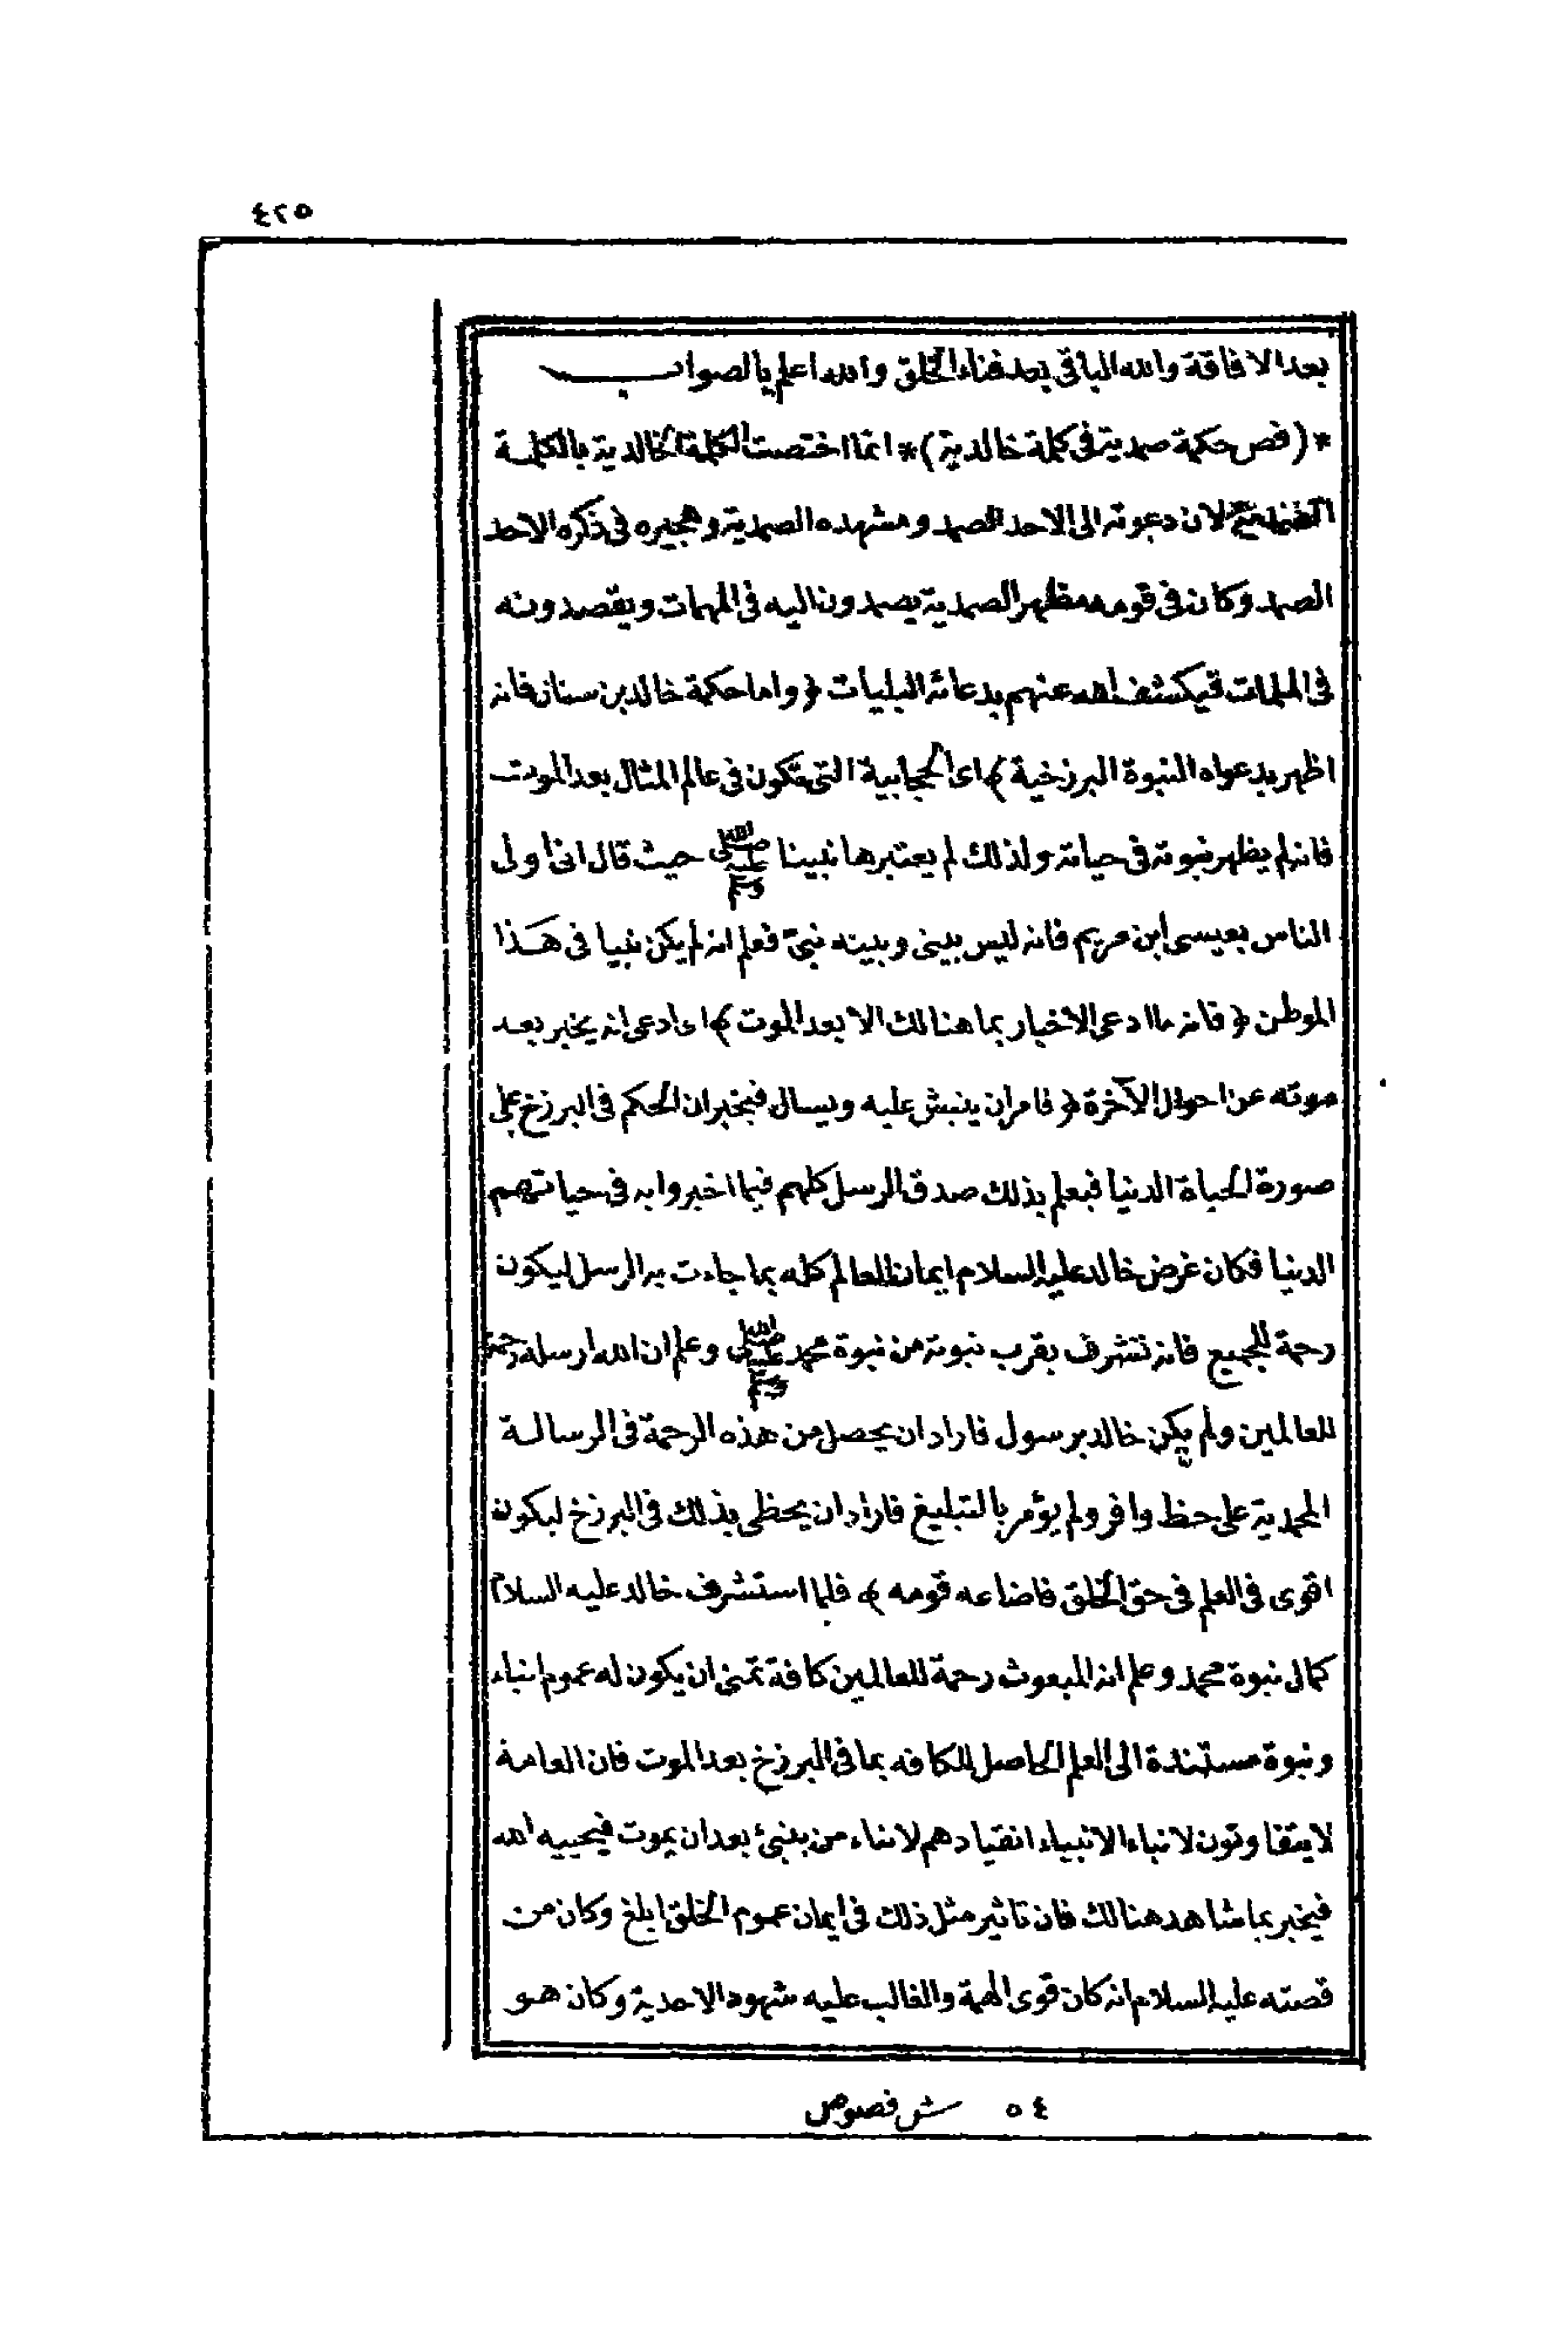 ٤٢٥
بعد الافاقة والله الباقى بعد فناء الخلق والله اعلم بالصواب
*(فص حكمة صمدية فى كلمة خالدية)* انما اختصت الكلمة الخالدية بالكلمة
الصمدية لان دعوته الى الاحد الصمد ومشهده الصمدية وهجيره فى ذكره الاحد
الصمد وكان فى قومه مظهر الصمدية يصمدون اليه فى المهمات ويقصدونه
فى الملمات فيكشف الله عنهم بدعائه البليات ﴿واما حكمة خالد بن سنان فانه
اظهر بدعواه النبوة البرزخية﴾ اى الحجابية التى تكون فى عالم المثال بعد الموت
فانه لم يظهر نبوته فى حياته ولذلك لم يعتبرها نبينا صلى الله عليه وسلم حيث قال انى اولى
الناس بعيسى ابن مريم فانه ليس بينى وبينه نبىّ فعلم انه لم يكن نبيا فى هذا
الموطن ﴿فانه ما ادعى الاخبار بما هنالك الا بعد الموت﴾ اى ادعى انه يخبر بعد
موته عن احوال الآخرة ﴿فامر ان ينبش عليه ويسال فيخبر ان الحكم فى البرزخ على
صورة الحياة الدنيا فيعلم بذلك صدق الرسل كلهم فيما اخبروا به فى حياتهم
الدنيا فكان غرض خالد عليه السلام ايمان العالم كله بما جاءت به الرسل ليكون
رحمة للجميع فانه تشرف بقرب نبوته من نبوة محمد صلى الله عليه وسلم وعلم ان الله ارسله رحمة
للعالمين ولم يكن خالد برسول فاراد ان يحصل من هذه الرحمة فى الرسالة
المحمدية على حظ وافر ولم يؤمر بالتبليغ فاراد ان يحظى بذلك فى البرزخ ليكون
اقوى فى العلم فى حق الخلق فاضاعه قومه﴾ فلما استشرف خالد عليه السلام
كمال نبوة محمد وعلم انه المبعوث رحمة للعالمين كافة تمنى ان يكون له عموم انباء
ونبوة مستندة الى العلم الحاصل للكافه بما فى البرزخ بعد الموت فان العامة
لا يتفاوتون لانباء الانبياء انقيادهم لانباء من ينبئ بعد ان يموت فيحييه الله
فيخبر بما شاهد هنالك فان تاثير مثل ذلك فى ايمان عموم الخلق ابلغ وكان من
قصته عليه السلام انه كان قوى الهمة والغالب عليه شهود الاحدية وكان هو
٥٤ ش فصوص